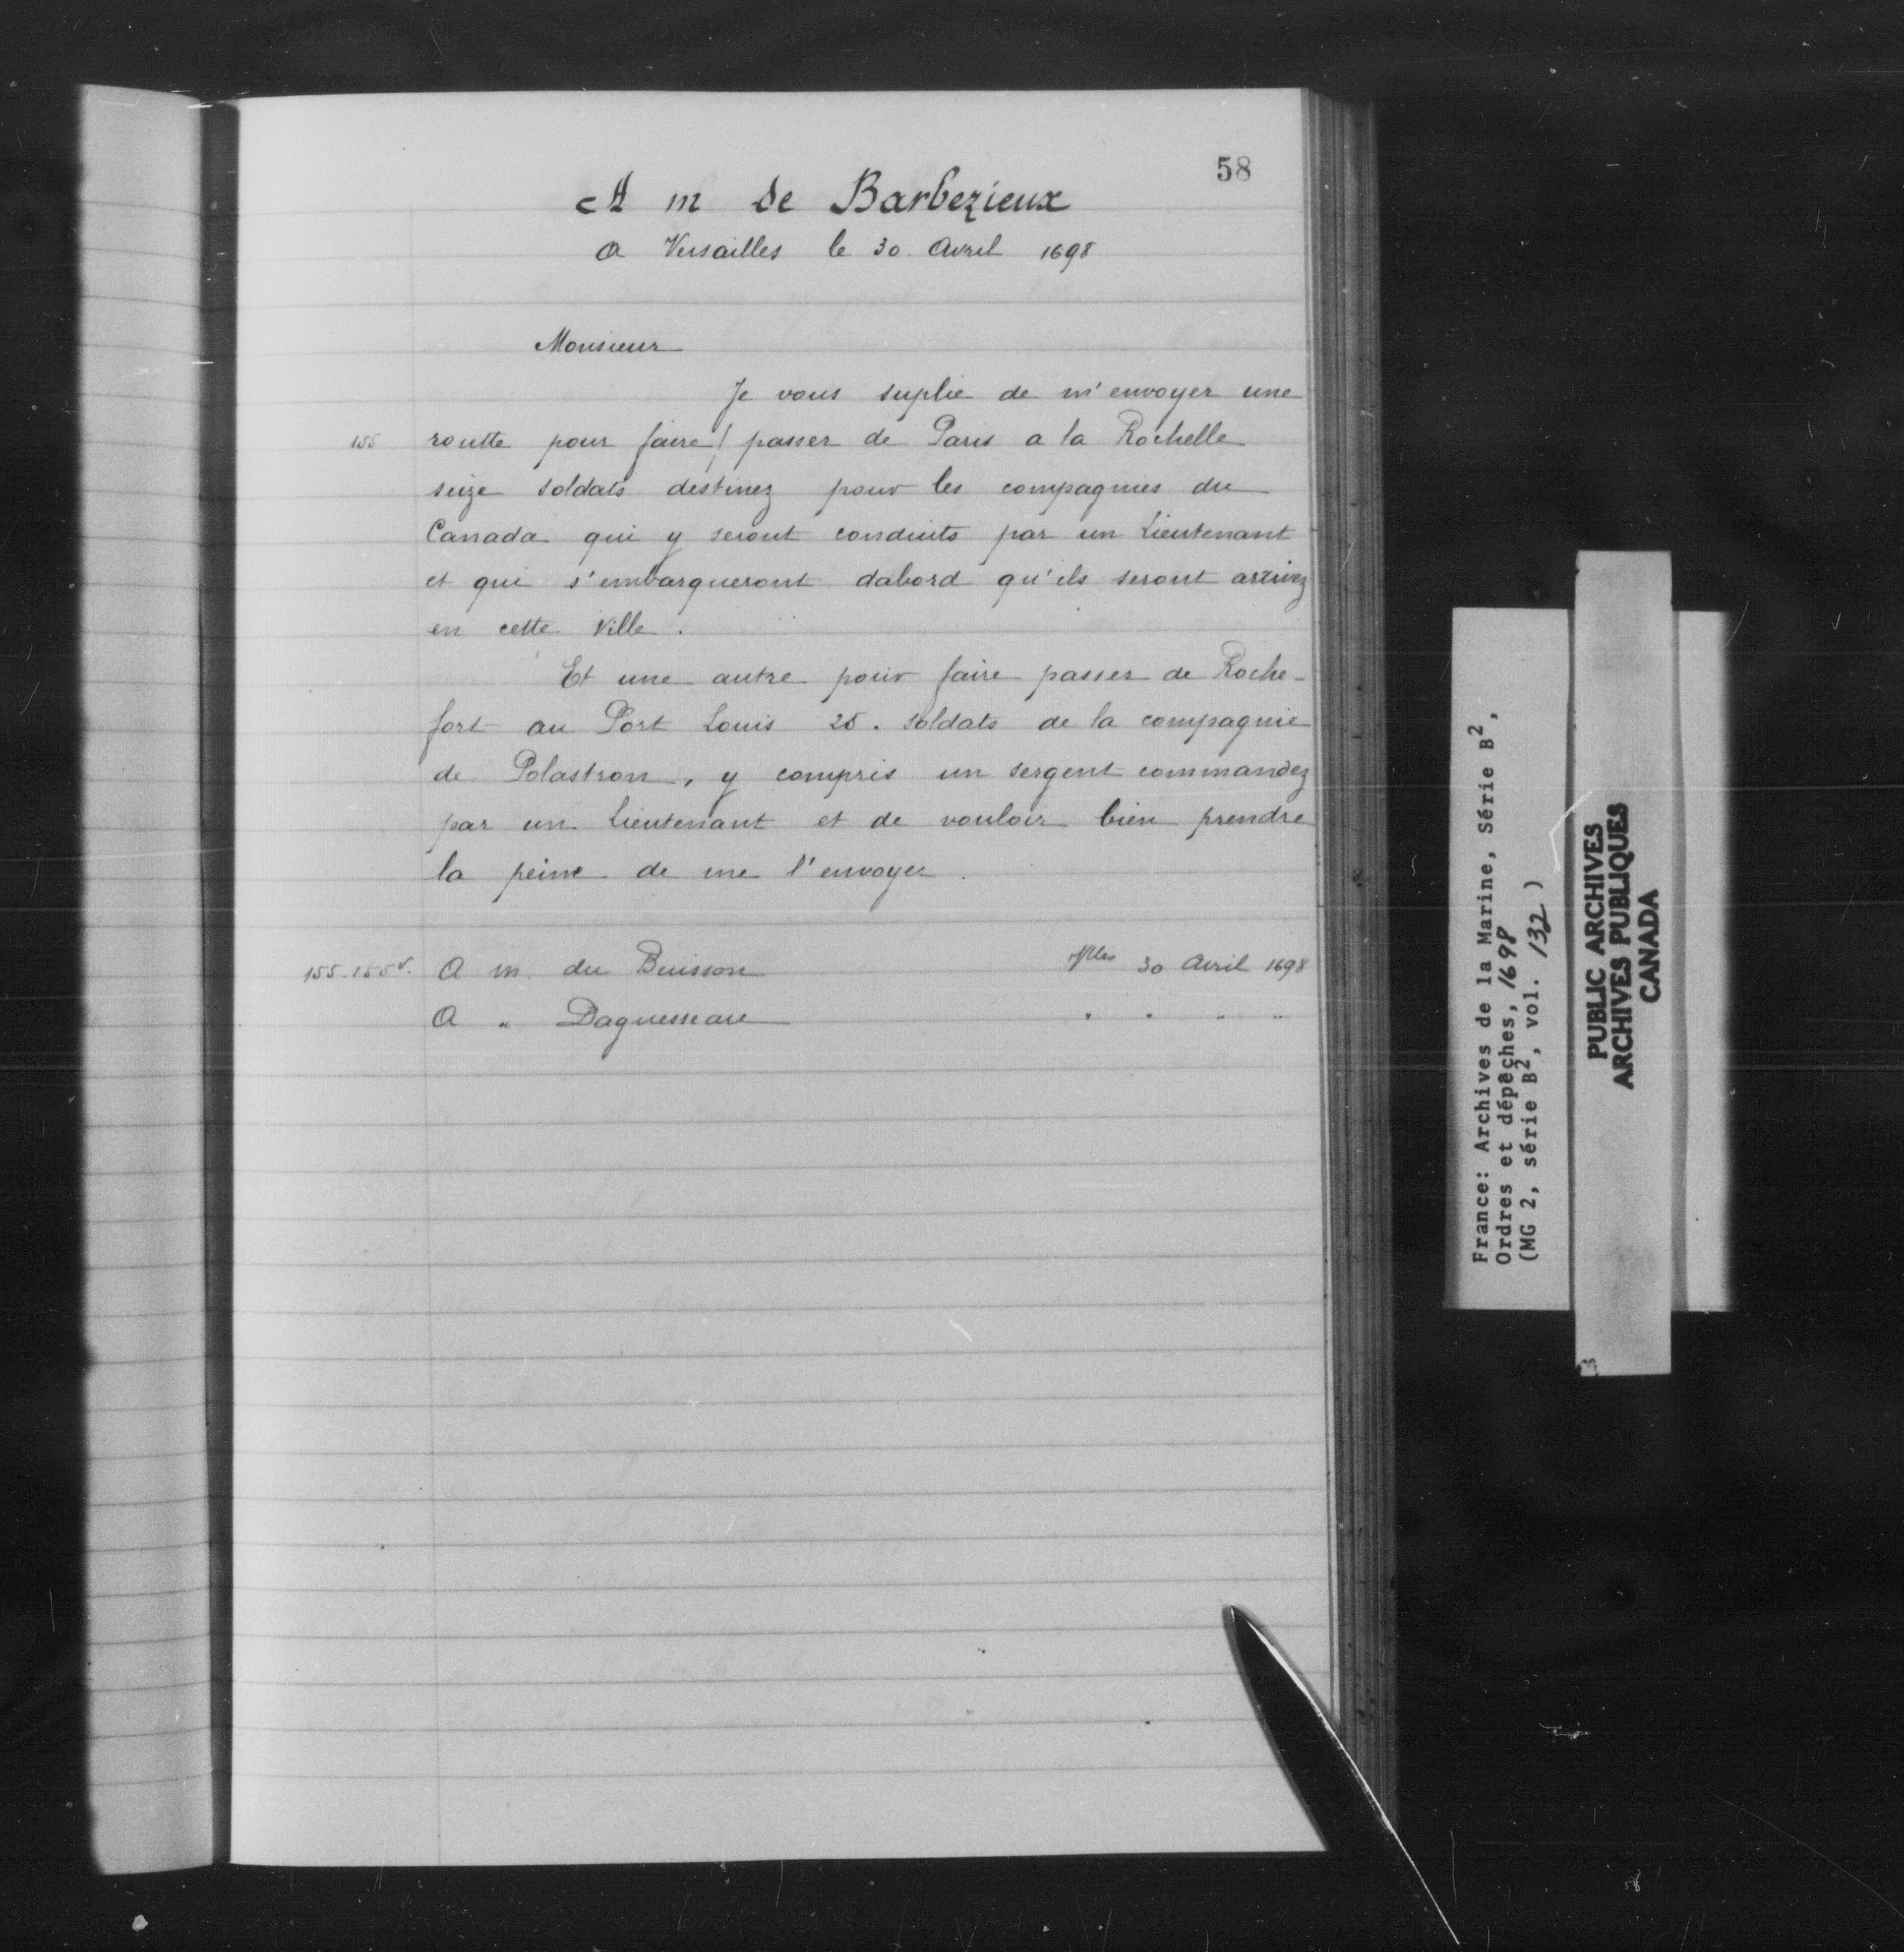 58
A m de Barbezieux
a Versailles le 30 Avril 1698
Monsieur
Je vous suplie de m'envoyer une
155 routte pour faire / passer de Paris a la Rochelle
seize soldats destinez pour les compagnies du
Canada qui y seront conduits par un Lieutenant
et qui s'embarqueront dabord qu'ils seront arrivez
en cette Ville.
Et une autre pour faire passer de Roche-
fort au Port Louis 25. soldats de la compagnie
de Polastron, y compris un sergent commandez
par un Lieutenant et de vouloir bien prendre
la peine de me l'envoyer.
155-155v. A m. du Buisson Vlles 30 Avril 1698
A " Daguesseau " " " "
France: Archives de la Marine, Série B2,
Ordres et dépêches, 1698
(MG 2, série B2, vol. 132)
PUBLIC ARCHIVES
ARCHIVES PUBLIQUES
CANADA